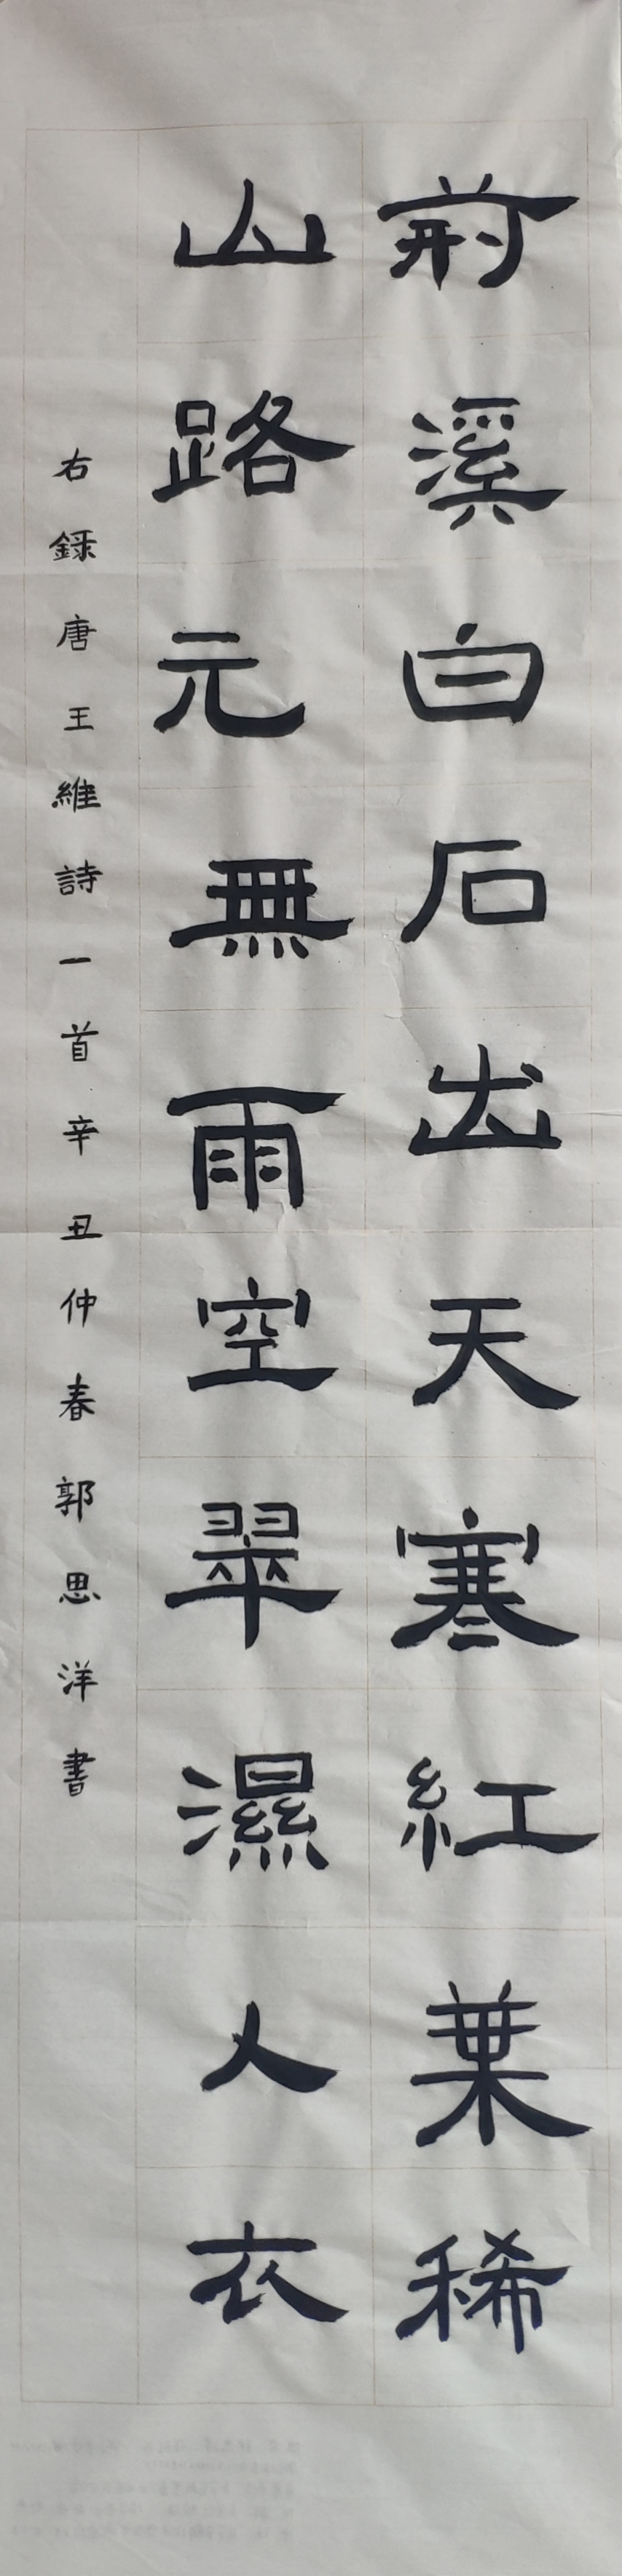 前溪白石出天寒紅葉稀
山路元無雨空翠濕人衣
右録唐王維詩一首辛丑仲春郭思洋書